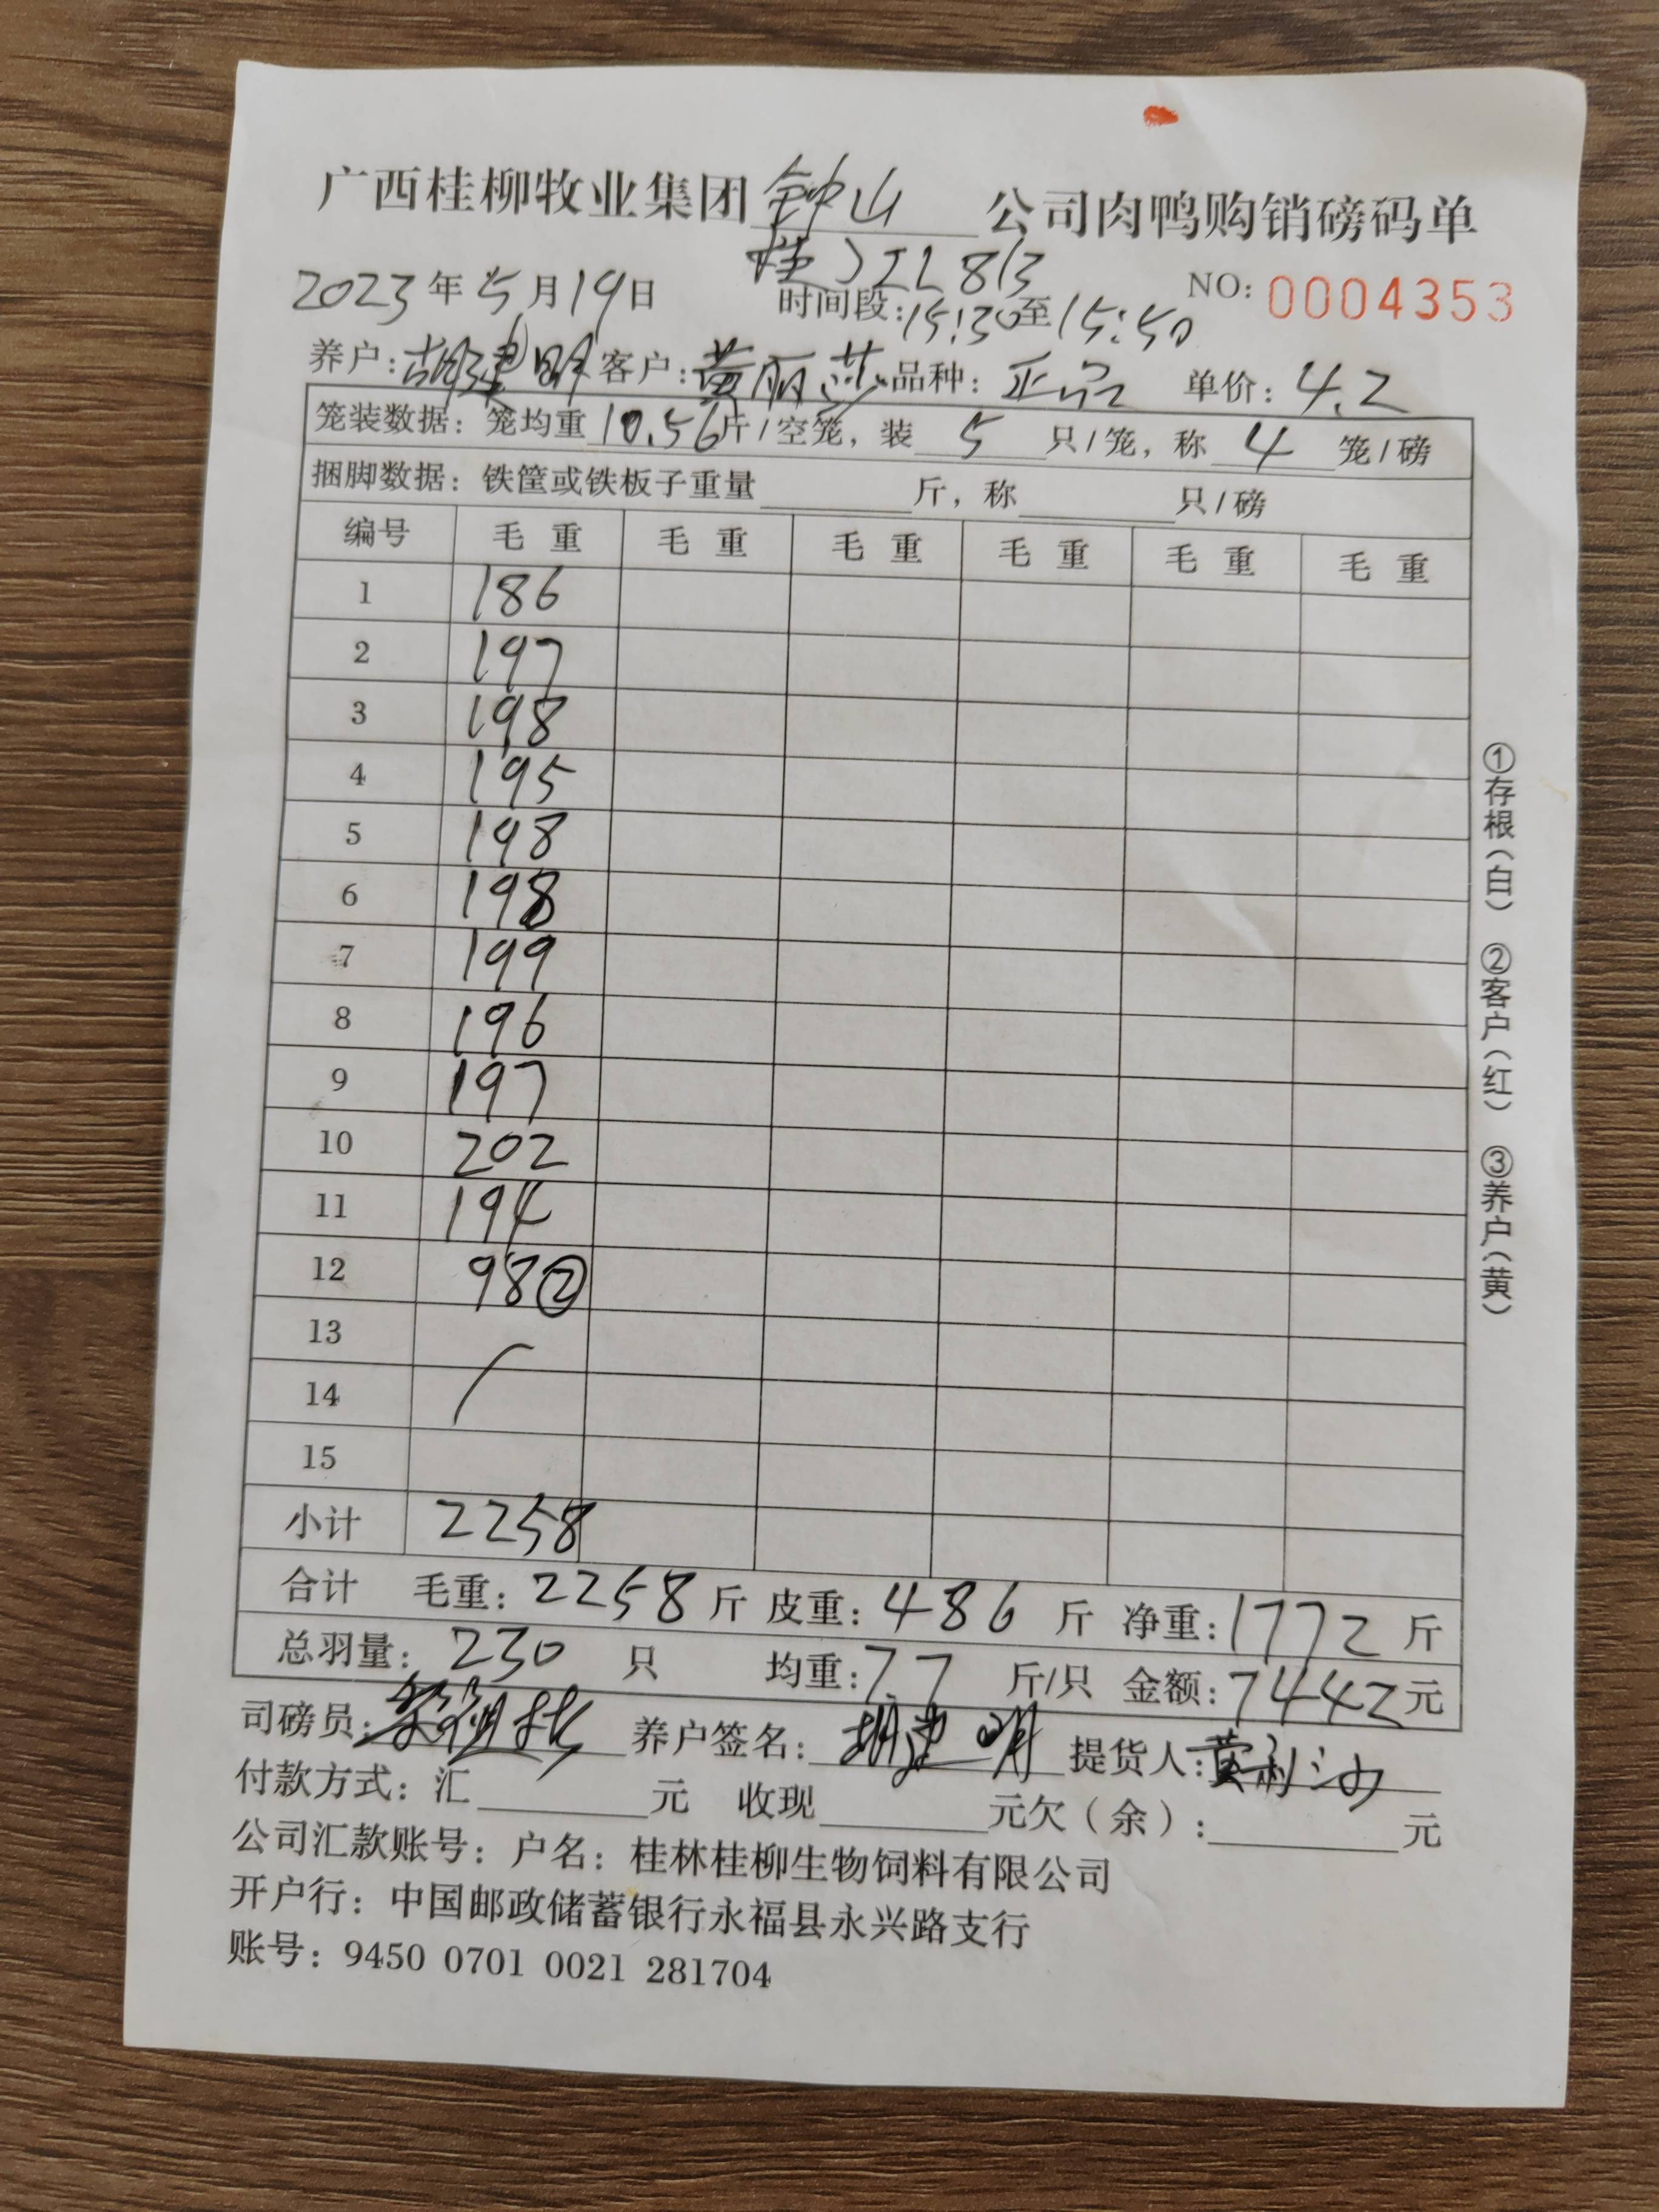 广西桂柳牧业集团 钟山 公司肉鸭购销磅码单
桂JZL813
2023年5月19日 时间段:15:30至15:50 NO: 0004353
养户:胡建明 客户:黄丽莎 品种:正品 单价:4.2
笼装数据:笼均重10.56斤/空笼,装 5 只/笼,称 4 笼/磅
捆脚数据:铁筐或铁板子重量 斤,称 只/磅
编号 毛重 毛重 毛重 毛重 毛重 毛重
1 186
2 197
3 198
4 195
5 198
6 198
7 199
8 196
9 197
10 202
11 194
12 98②
13
14
15
小计 2258
合计 毛重:2258斤 皮重:486斤 净重:1772斤
总羽量:230 只 均重:7.7 斤/只 金额:7442元
司磅员: 养户签名:胡建明 提货人:黄利沙
付款方式:汇 元 收现 元欠(余): 元
公司汇款账号:户名:桂林桂柳生物饲料有限公司
开户行:中国邮政储蓄银行永福县永兴路支行
账号:9450 0701 0021 281704
①存根(白) ②客户(红) ③养户(黄)